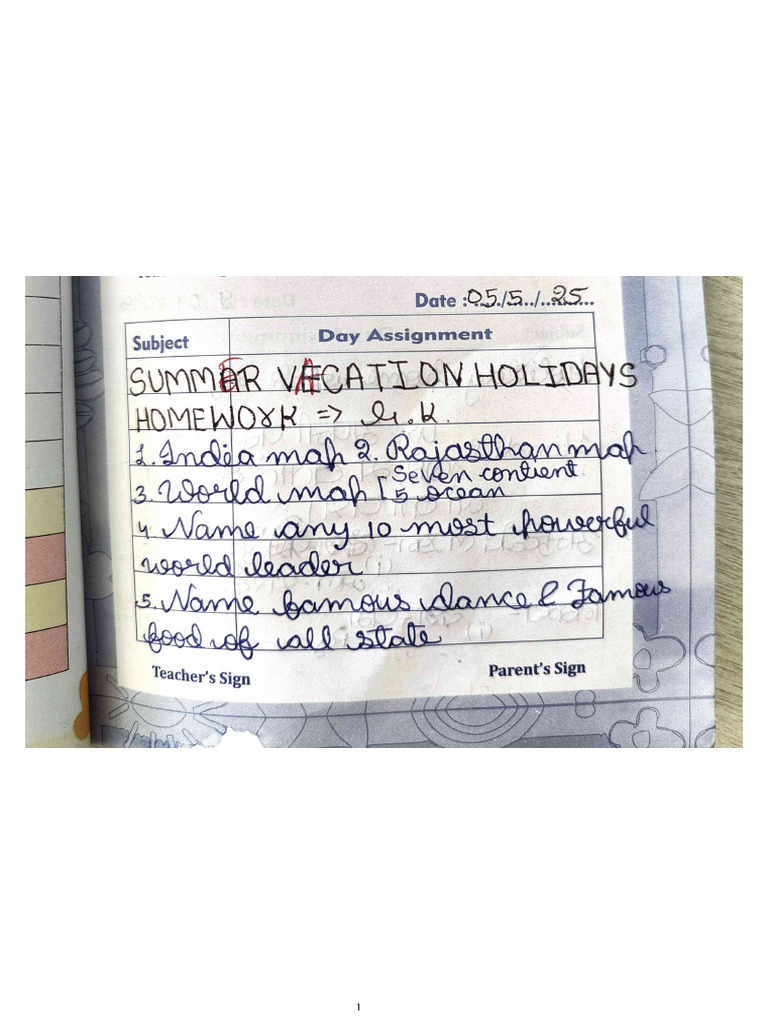 Date : 05/5/25
Subject Day Assignment
SUMMER VACATION HOLIDAYS
HOMEWORK => G.K.
1. India map 2. Rajasthan map
3. World map [ Seven contient
5 ocean
4 Name any 10 most powerful
world leader
5. Name famous dance & Famous
food of all state
Teacher's Sign Parent's Sign
1